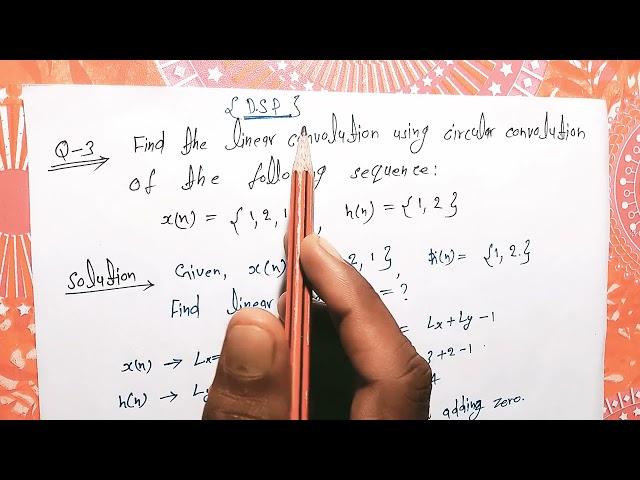 { D.S.P }
Q-3 Find the linear convolution using circular convolution
of the following sequence:
x(n) = {1, 2, 1 , h(n) = {1, 2}
Solution Given, x(n) 2, 1}, h(n) = {1, 2.}
Find linear = ?
x(n) → Lx= = Lx + Ly - 1
h(n) → Ly 3+2-1
4
adding zero.